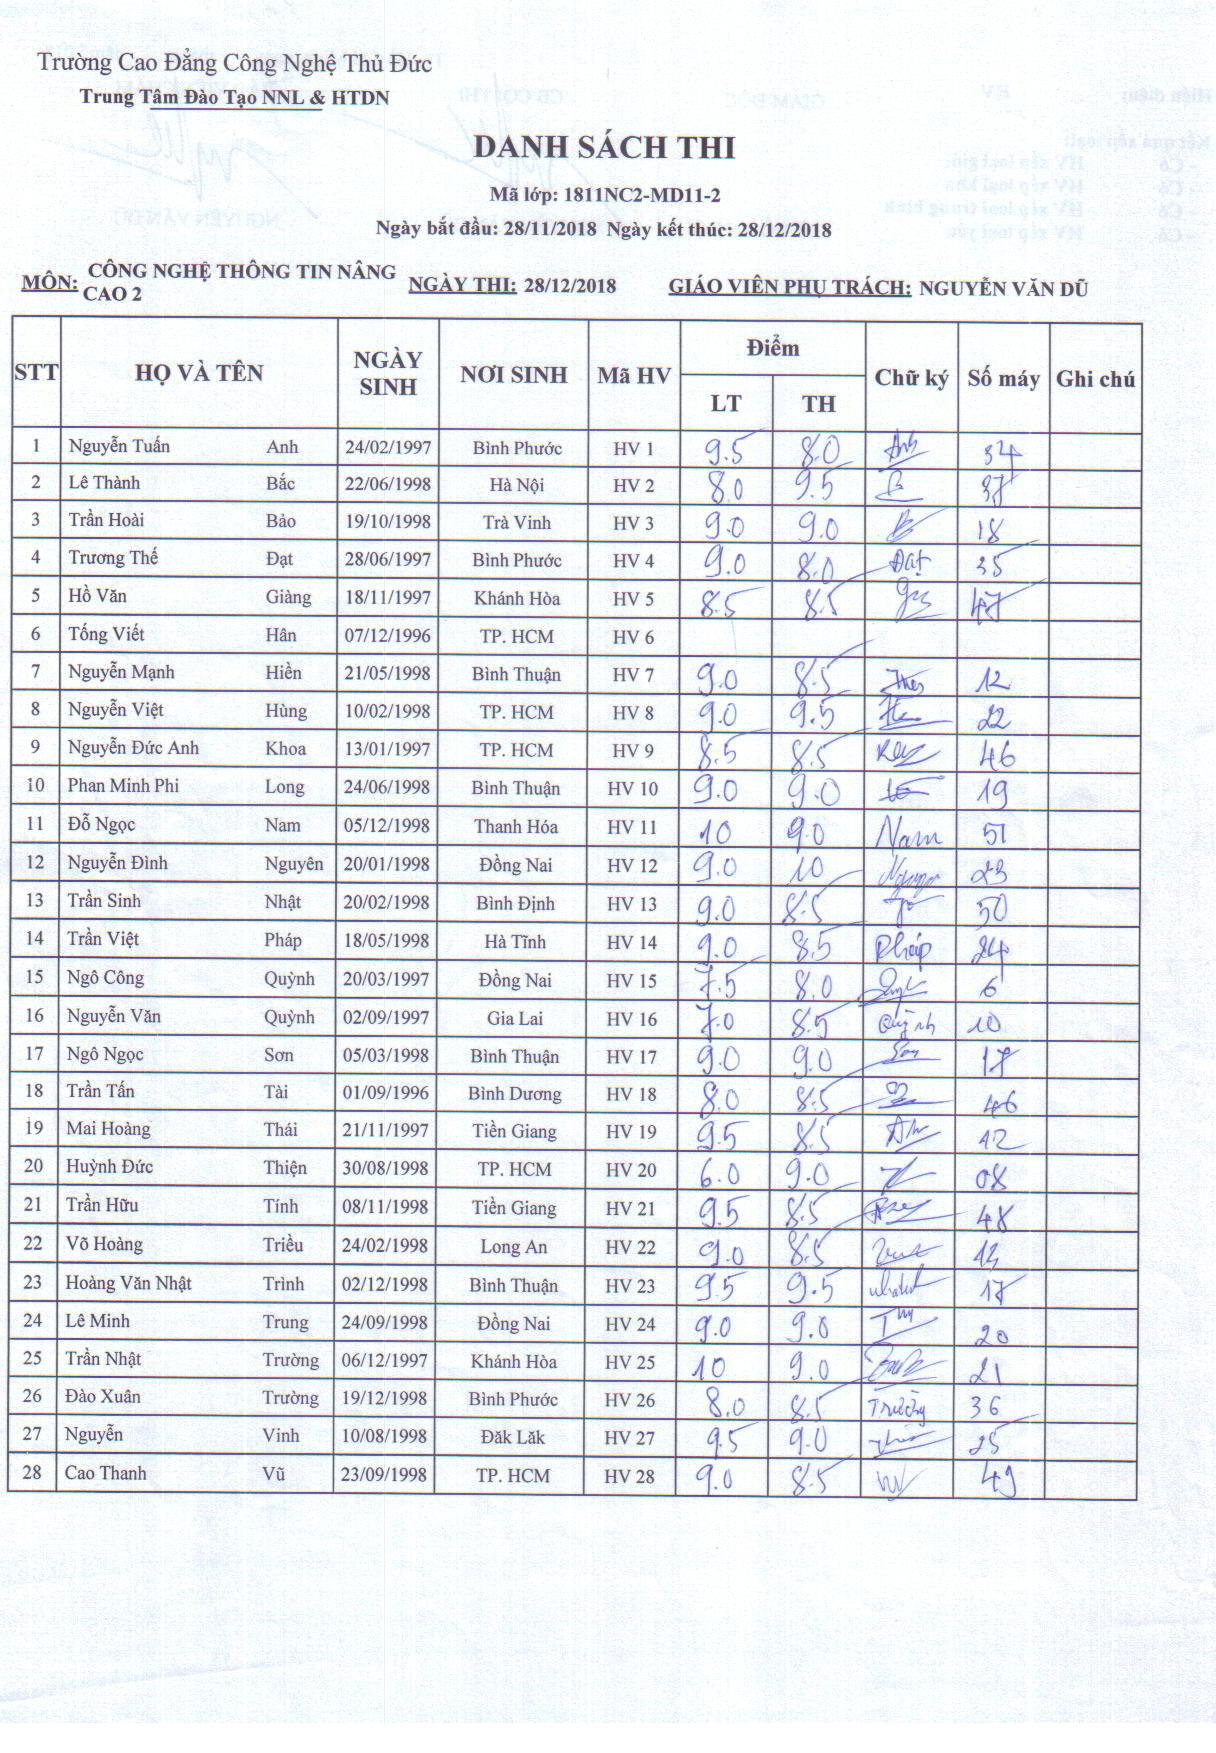 Trường Cao Đẳng Công Nghệ Thủ Đức
Trung Tâm Đào Tạo NNL & HTDN
DANH SÁCH THI
Mã lớp: 1811NC2-MD11-2
Ngày bắt đầu: 28/11/2018 Ngày kết thúc: 28/12/2018
MÔN: CÔNG NGHỆ THÔNG TIN NÂNG CAO 2 NGÀY THI: 28/12/2018 GIÁO VIÊN PHỤ TRÁCH: NGUYỄN VĂN DŨ
STT HỌ VÀ TÊN NGÀY SINH NƠI SINH Mã HV Điểm Chữ ký Số máy Ghi chú
LT TH
1 Nguyễn Tuấn Anh 24/02/1997 Bình Phước HV 1 9.5 8.0 Anh 34
2 Lê Thành Bắc 22/06/1998 Hà Nội HV 2 8.0 9.5 37
3 Trần Hoài Bảo 19/10/1998 Trà Vinh HV 3 9.0 9.0 18
4 Trương Thế Đạt 28/06/1997 Bình Phước HV 4 9.0 8.0 Đạt 35
5 Hồ Văn Giàng 18/11/1997 Khánh Hòa HV 5 8.5 8.5 47
6 Tống Viết Hân 07/12/1996 TP. HCM HV 6
7 Nguyễn Mạnh Hiền 21/05/1998 Bình Thuận HV 7 9.0 8.5 12
8 Nguyễn Việt Hùng 10/02/1998 TP. HCM HV 8 9.0 9.5 22
9 Nguyễn Đức Anh Khoa 13/01/1997 TP. HCM HV 9 8.5 8.5 46
10 Phan Minh Phi Long 24/06/1998 Bình Thuận HV 10 9.0 9.0 19
11 Đỗ Ngọc Nam 05/12/1998 Thanh Hóa HV 11 10 9.0 Nam 51
12 Nguyễn Đình Nguyên 20/01/1998 Đồng Nai HV 12 9.0 10 23
13 Trần Sinh Nhật 20/02/1998 Bình Định HV 13 9.0 8.5 50
14 Trần Việt Pháp 18/05/1998 Hà Tĩnh HV 14 9.0 8.5 Pháp 24
15 Ngô Công Quỳnh 20/03/1997 Đồng Nai HV 15 7.5 8.0 6
16 Nguyễn Văn Quỳnh 02/09/1997 Gia Lai HV 16 7.0 8.5 Quỳnh 10
17 Ngô Ngọc Sơn 05/03/1998 Bình Thuận HV 17 9.0 9.0 17
18 Trần Tấn Tài 01/09/1996 Bình Dương HV 18 8.0 8.5 46
19 Mai Hoàng Thái 21/11/1997 Tiền Giang HV 19 9.5 8.5 12
20 Huỳnh Đức Thiện 30/08/1998 TP. HCM HV 20 6.0 9.0 08
21 Trần Hữu Tính 08/11/1998 Tiền Giang HV 21 9.5 8.5 48
22 Võ Hoàng Triều 24/02/1998 Long An HV 22 9.0 8.5 13
23 Hoàng Văn Nhật Trình 02/12/1998 Bình Thuận HV 23 9.5 9.5 17
24 Lê Minh Trung 24/09/1998 Đồng Nai HV 24 9.0 9.0 20
25 Trần Nhật Trường 06/12/1997 Khánh Hòa HV 25 10 9.0 21
26 Đào Xuân Trường 19/12/1998 Bình Phước HV 26 8.0 8.5 Trường 36
27 Nguyễn Vinh 10/08/1998 Đăk Lăk HV 27 9.5 9.0 25
28 Cao Thanh Vũ 23/09/1998 TP. HCM HV 28 9.0 8.5 49